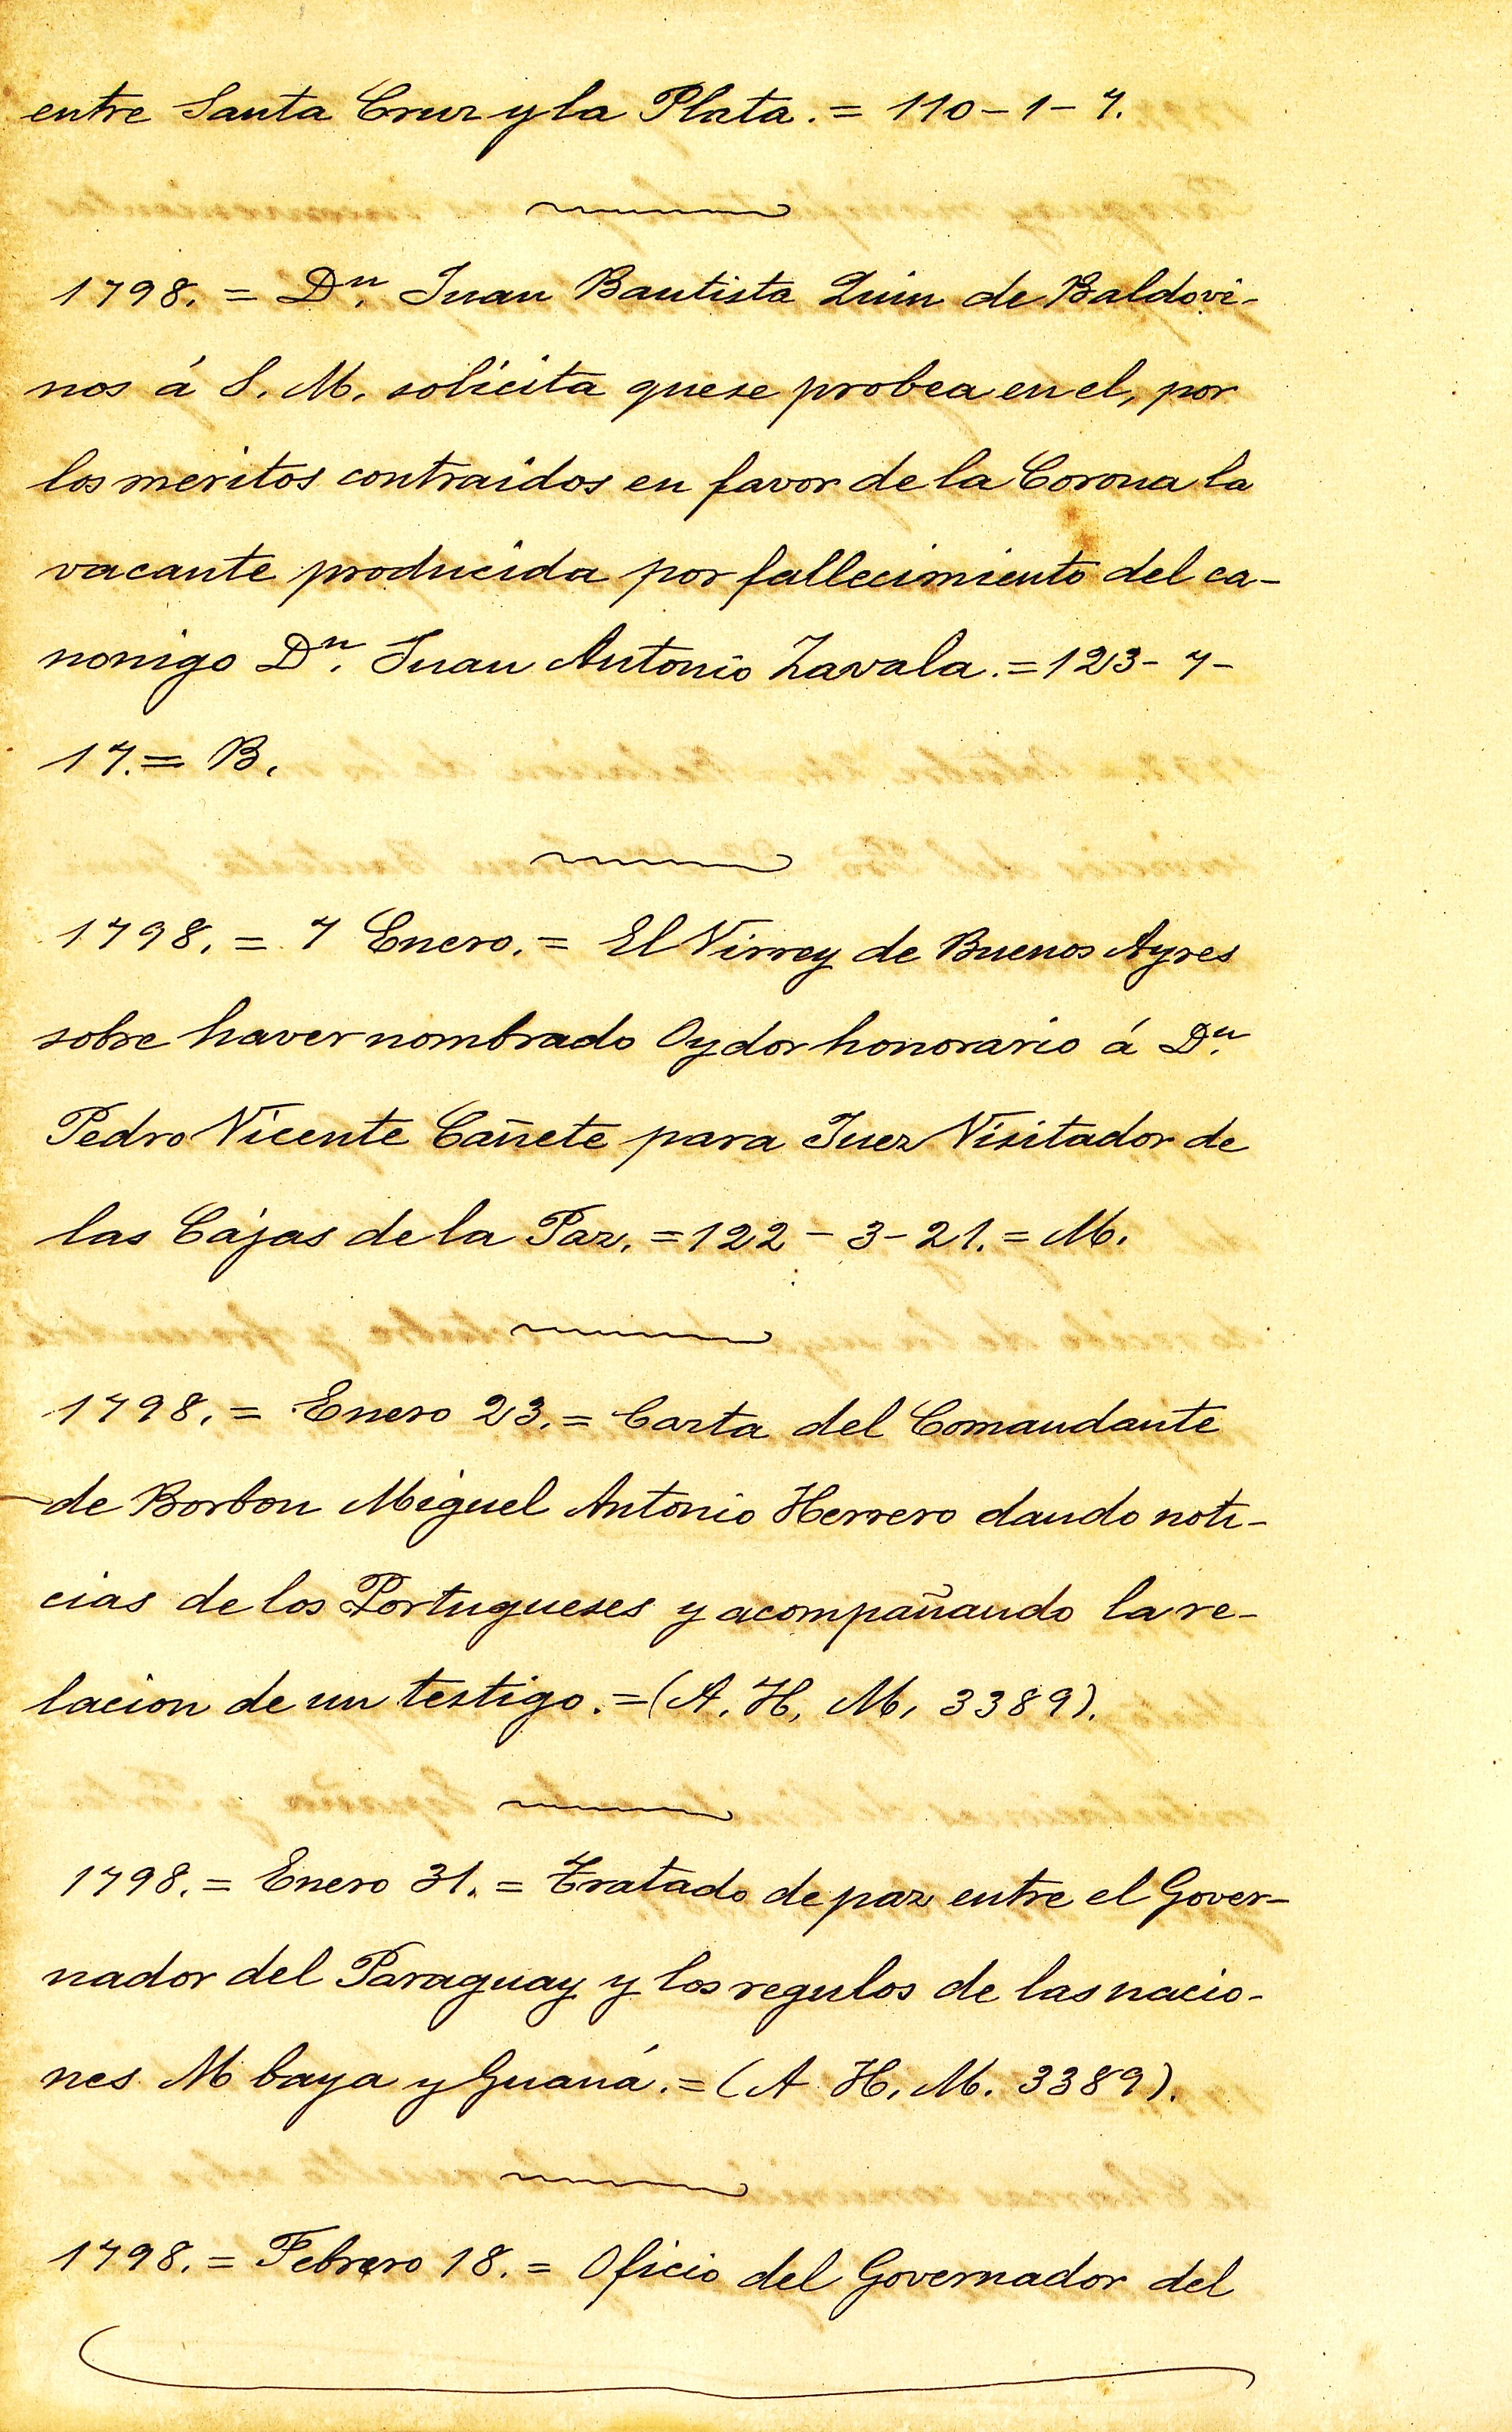 entre Santa Cruz y la Plata. = 110 - 1 - 7.
1798. = Dn. Juan Bautista Quin de Baldovi-
nos á S. M. solicita que se probea en el, por
los meritos contraidos en favor de la Corona la
vacante producida por fallecimiento del ca-
nonigo Dn. Juan Antonio Zavala. = 123 - 7 -
17. = B.
1798. = 7 Enero. = El Virrey de Buenos Ayres
sobre haver nombrado Oydor honorario á Dn.
Pedro Vicente Cañete para Juez Visitador de
las Cajas de la Paz. = 122 - 3 - 21. = M.
1798. = Enero 23. = Carta del Comandante
de Borbon Miguel Antonio Herrero dando noti-
cias de los Portugueses y acompañando la re-
lacion de un testigo. = (A. H. M. 3389).
1798. = Enero 31. = Tratado de paz entre el Gover-
nador del Paraguay y los regulos de las nacio-
nes Mbaya y Guaná. = (A H. M. 3389).
1798. = Febrero 18. = Oficio del Governador del